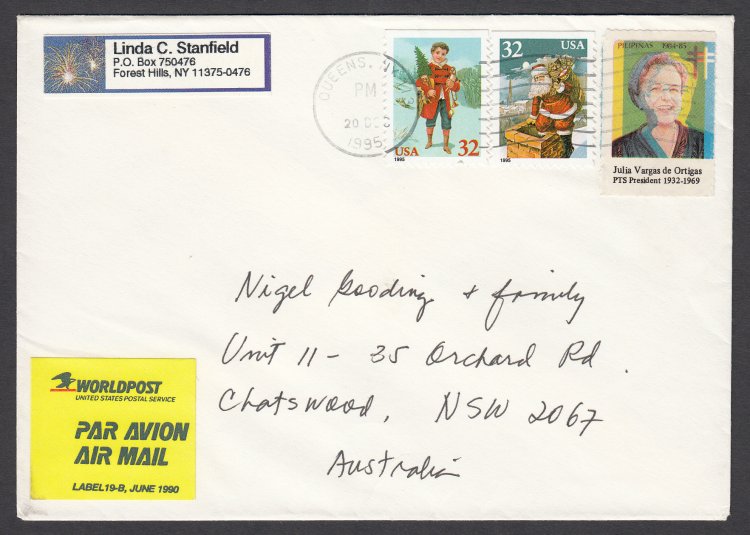 Linda C. Stanfield
P.O. Box 750476
Forest Hills, NY 11375-0476
QUEENS, N
PM
20 DEC
1995
USA 32
1995
32 USA
1995
PILIPINAS 1984-85
Julia Vargas de Ortigas
PTS President 1932-1969
Nigel Gooding & family
Unit 11 - 35 Orchard Rd.
Chatswood, NSW 2067
Australia
WORLDPOST
UNITED STATES POSTAL SERVICE
PAR AVION
AIR MAIL
LABEL 19-B, JUNE 1990